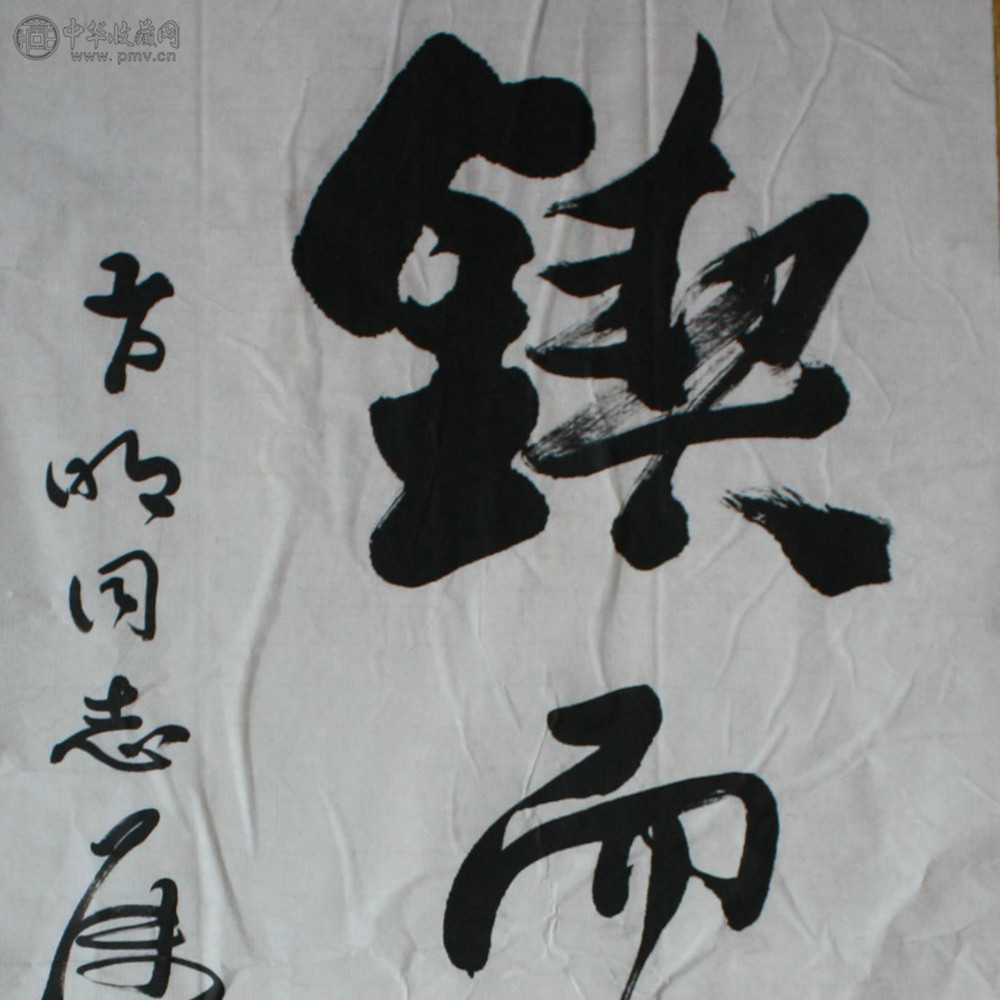 中华收藏网
www.pmv.cn
锲而
明同志属